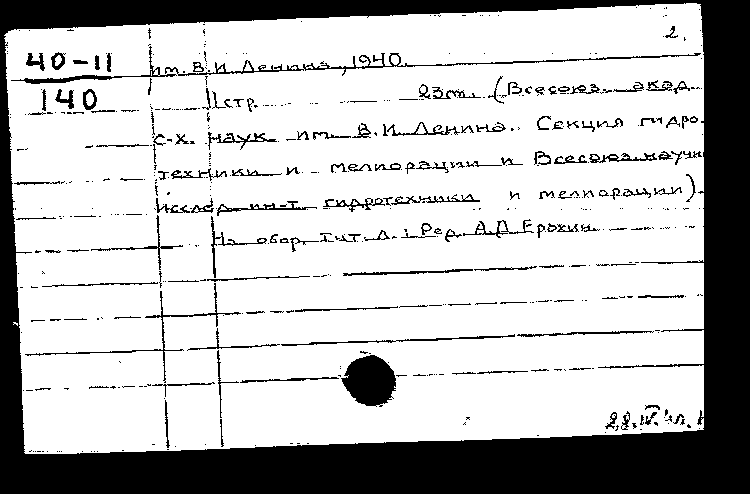 2.
40-11
140
им. В.И Ленина, 1940.
11 стр. 23 см. (Всесоюз. акад.
с-х. наук им. В.И Ленина. Секция гидро-
техники и мелиорации и Всесоюз. научн
исслед. ин-т. гидротехники и мелиорации).
На обор. тит. л.: Ред. А.Д Ерохин.
28.IV.